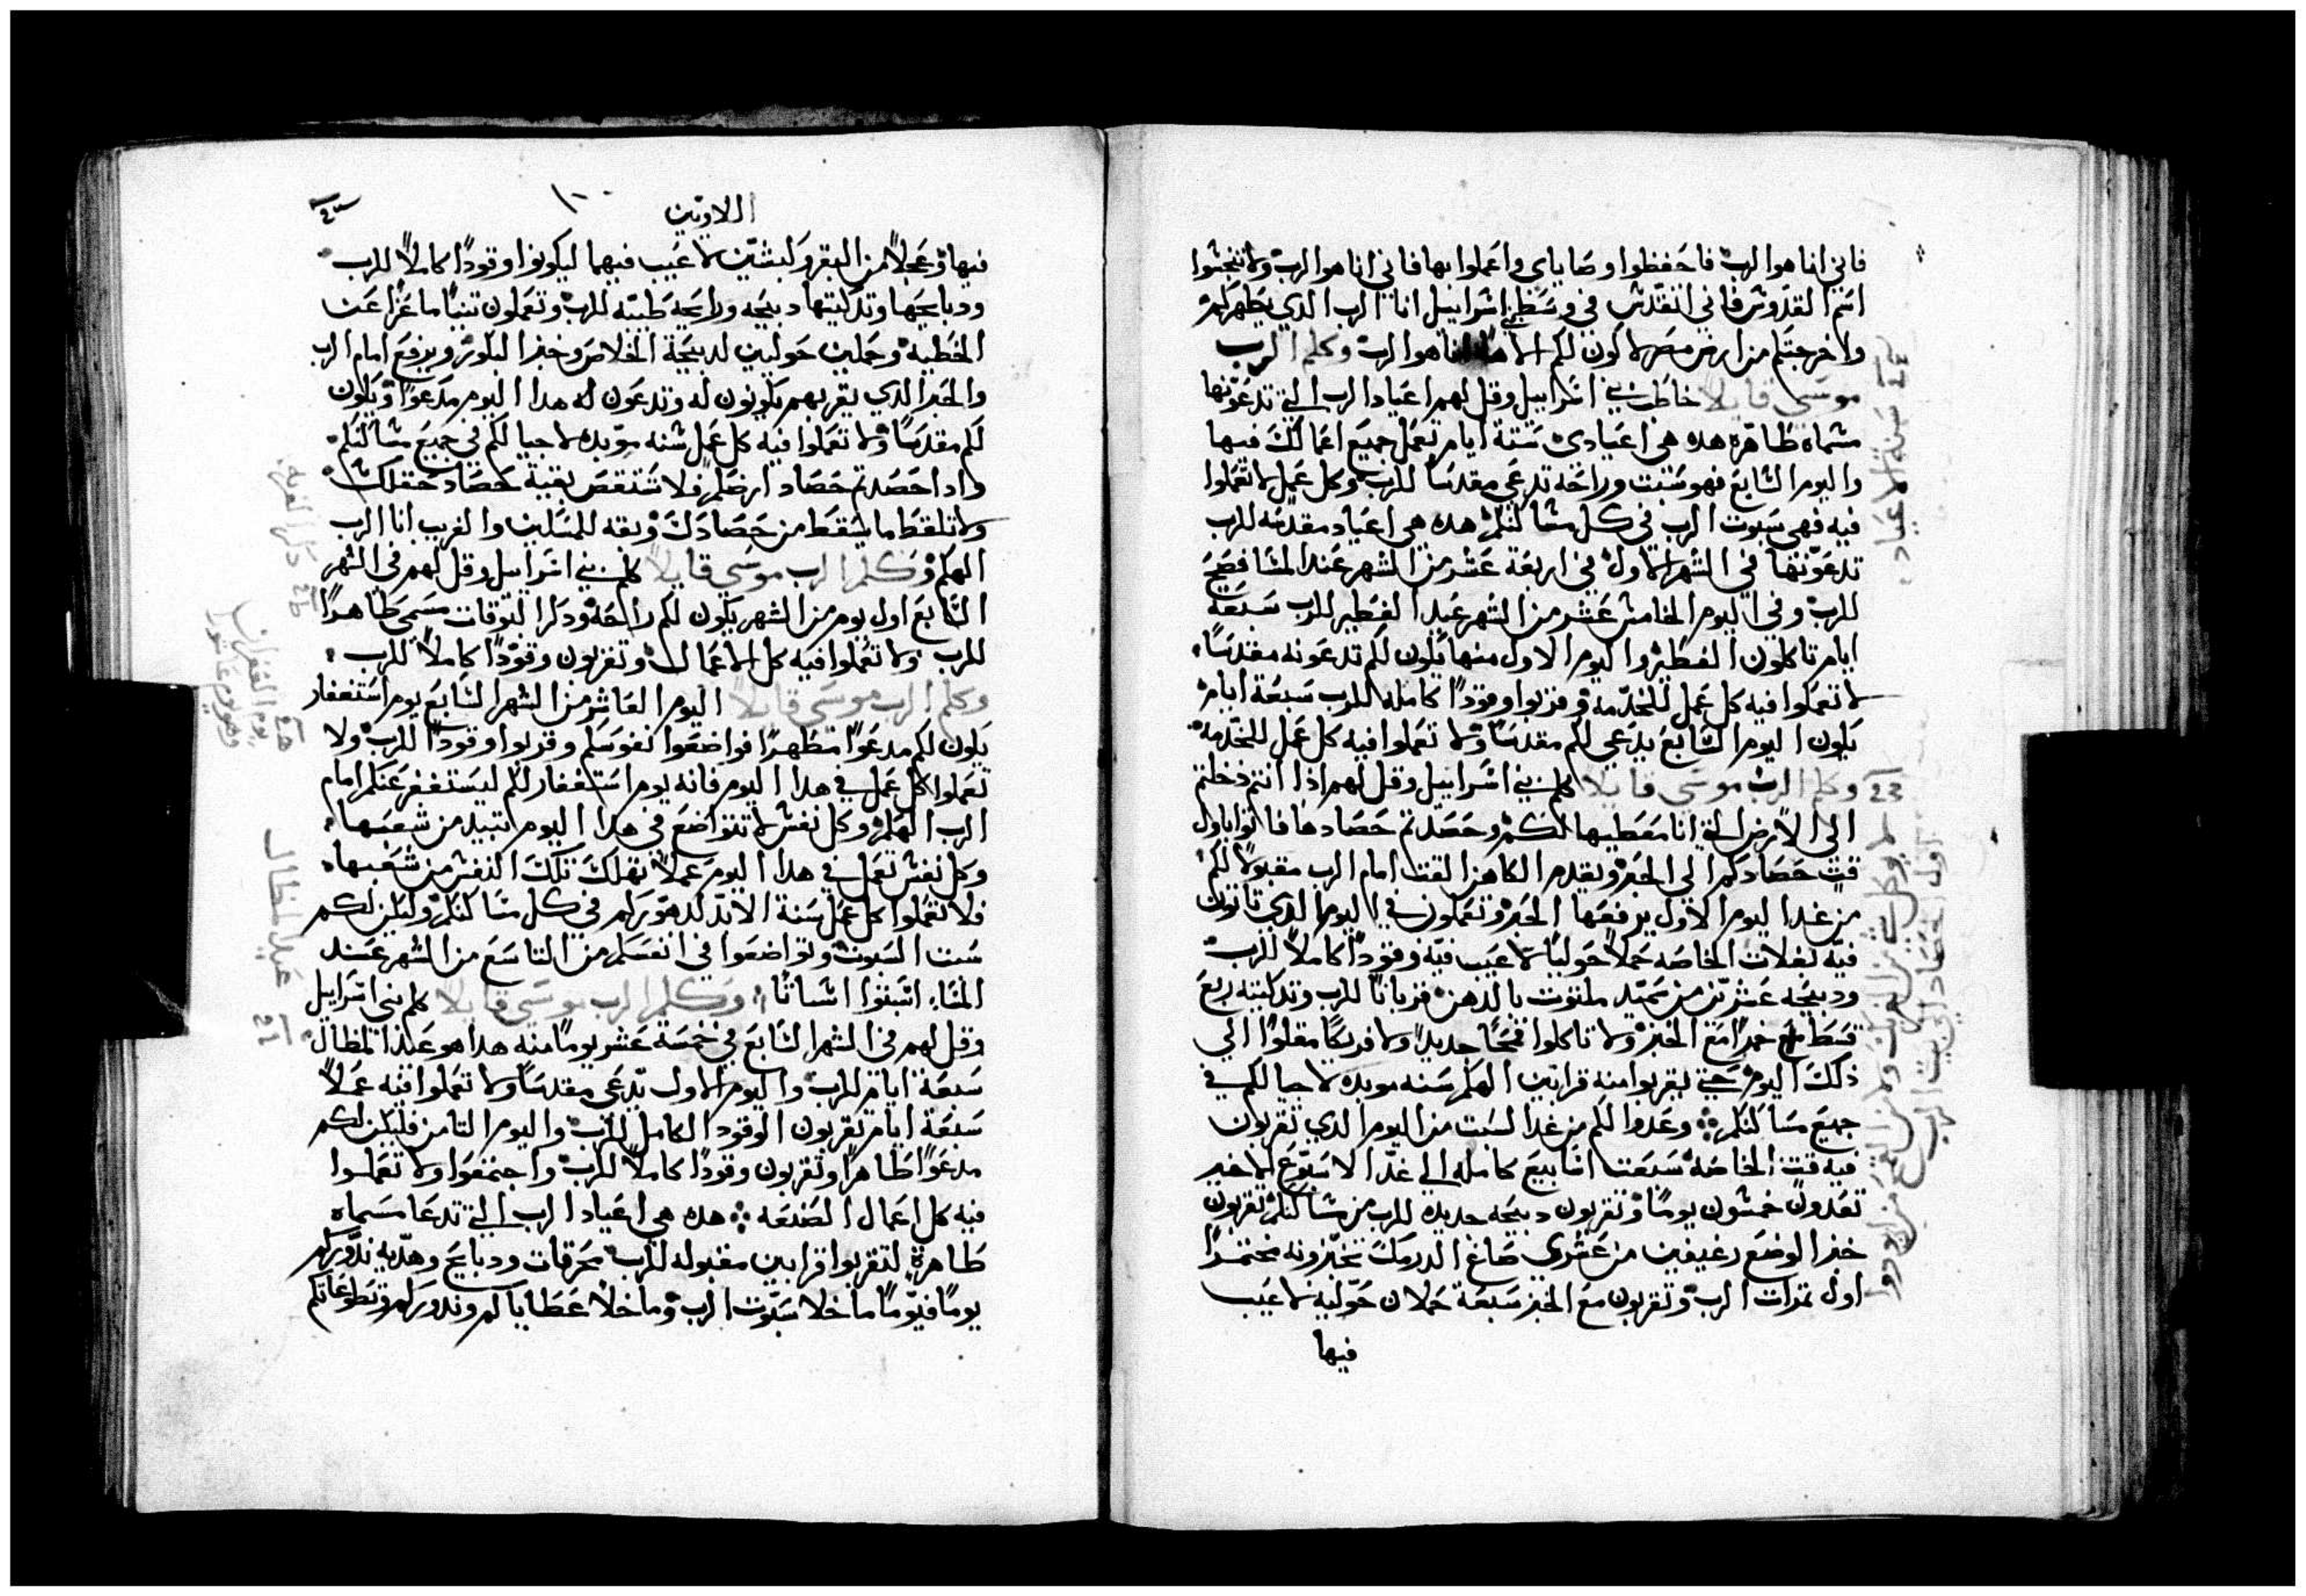 فاني انا هو الرب فاحفظوا وصاياي واعملوا بها فاني انا هو الرب ولا تنجشوا
اسم القدوس فاني اتقدس في وسط بني اسراييل انا الرب الدي يطهركم
واخرجتكم من ارض مصر لاكون لكم الاها انا هو الرب وكلم الرب
موسى قايلا خاطب بني اسراييل وقل لهم اعياد الرب التي تدعونها
مسماه طاهره هده هي اعيادي ستة ايام تعمل جميع اعمالك فيها
واليوم السابع فهو سبت وراحه تدعي مقدسا للرب وكل عمل لا تعملوا
فيه فهي سبوت الرب في كل مساكنكم هده هي اعياد مقدسه للرب
تدعونها في الشهر الاول في اربعة عشر من الشهر عند المسا فصح
للرب وفي اليوم الخامس عشر من الشهر عيد الفطير للرب سبعة
ايام تاكلون الفطير واليوم الاول منها يكون لكم تدعونه مقدسا
لا تعملوا فيه كل عمل للخدمه وقربوا وقودا كامله للرب سبعة ايام
يكون اليوم السابع يدعي لكم مقدسا ولا تعملوا فيه كل عمل للخدمه
وكلم الرب موسى قايلا كلم بني اسراييل وقل لهم اذا انتم دخلتم
الى الارض التي انا معطيها لكم وحصدتم حصادها فاتوا باول
قت حصادكم الي الحبر ويقدم الكاهن القت امام الرب مقبولا لكم
من غد اليوم الاول يرفعها الحبر وتعملون في اليوم الدي تاتون
فيه بغلات الخاصه حملا حوليا لا عيب فيه وقودا كاملا للرب
ودبيحه عشرين من سميد ملتوت بالدهن قربانا للرب وتدكيته ربع
قسط خمرا مع الخبز ولا تاكلوا قمحا جديدا ولا فريكا مقلوا الي
ذلك اليوم حتي تقربوا منه قرابين الهكم سنه موبده لاجيالكم في
جميع مساكنكم وعدوا لكم من غد السبت من اليوم الدي تقربون
فيه قت الخاصه سبعت اسابيع كامله الي غد الاسبوع الاخير
تعدون خمسون يوما وتقربون دبيحه جديده للرب من مساكنكم تقربون
خبز الوضع رغيفين من عشري صاغ الدرمك تخبزونه مختمرا
اول تمرات الرب وتقربون مع الخبز سبعة حملان حوليه لا عيب
فيها
سنة الاعياد
23
اللاويين
١٠٠
فيها وعجلا من البقر وكبشين لا عيب فيهما ليكونوا وقودا كاملا للرب
ودبايحها وتدكيتها دبيحه ورايحه طيبه للرب وتعملون تيسا ماعزا عن
الخطيه وحملين حوليين لدبيحة الخلاص وخبز البكور ويرفع امام الرب
والحبر الدي يقربهم يكونون له وتدعون له هدا اليوم مدعوا ويكون
لكم مقدسا ولا تعملوا فيه كل عمل سنه موبده لاجيالكم في جميع مساكنكم
وادا حصدتم حصاد ارضكم فلا تستقص بقية حصاد حقلك
ولا تلقط ما يسقط من حصادك وبقه للمسكين والغريب انا الرب
الهكم وكلم الرب موسى قايلا كلم بني اسراييل وقل لهم في الشهر
السابع اول يوم من الشهر يكون لكم راحه ودكر البوقات مسمى طاهرا
للرب ولا تعملوا فيه كل الاعمال وتقربون وقودا كاملا للرب
وكلم الرب موسى قايلا اليوم العاشر من الشهر السابع يوم استغفار
يكون لكم مدعوا مطهرا فواضعوا نفوسكم وقربوا وقودا للرب ولا
تعملوا كل عمل في هدا اليوم فانه يوم استغفار لكم ليستغفر عنكم امام
الرب الهكم وكل نفس لا تتواضع في هدا اليوم تبيد من شعبها
وكل نفس تعمل في هدا اليوم عملا تهلك تلك النفس من شعبها
فلا تعملوا كل عمل سنة الابد لدهوركم في كل مساكنكم وليكن لكم
سبت السبوت وتواضعوا في انفسكم من التاسع من الشهر عند
المسا اسبتوا اسباتا وكلم الرب موسى قايلا كلم بني اسراييل
وقل لهم في الشهر السابع في خمسة عشر يوما منه هدا هو عيد المظال
سبعة ايام للرب واليوم الاول يدعي مقدسا ولا تعملوا فيه عملا
سبعة ايام تقربون الوقود الكامل للرب واليوم التامن فليكن لكم
مدعوا طاهرا وتقربون وقودا كاملا للرب واجتمعوا ولا تعملوا
فيه كل اعمال الصنعه هده هي اعياد الرب التي تدعا مسماه
طاهرة لتقربوا قرابين مقبوله للرب محرقات ودبايح وهديه ندوركم
يوما فيوما ما خلا سبوت الرب وما خلا عطاياكم وندوركم وتطوعاتكم
يوم الغفران
وهو يوم عاشورا
عيد المظال